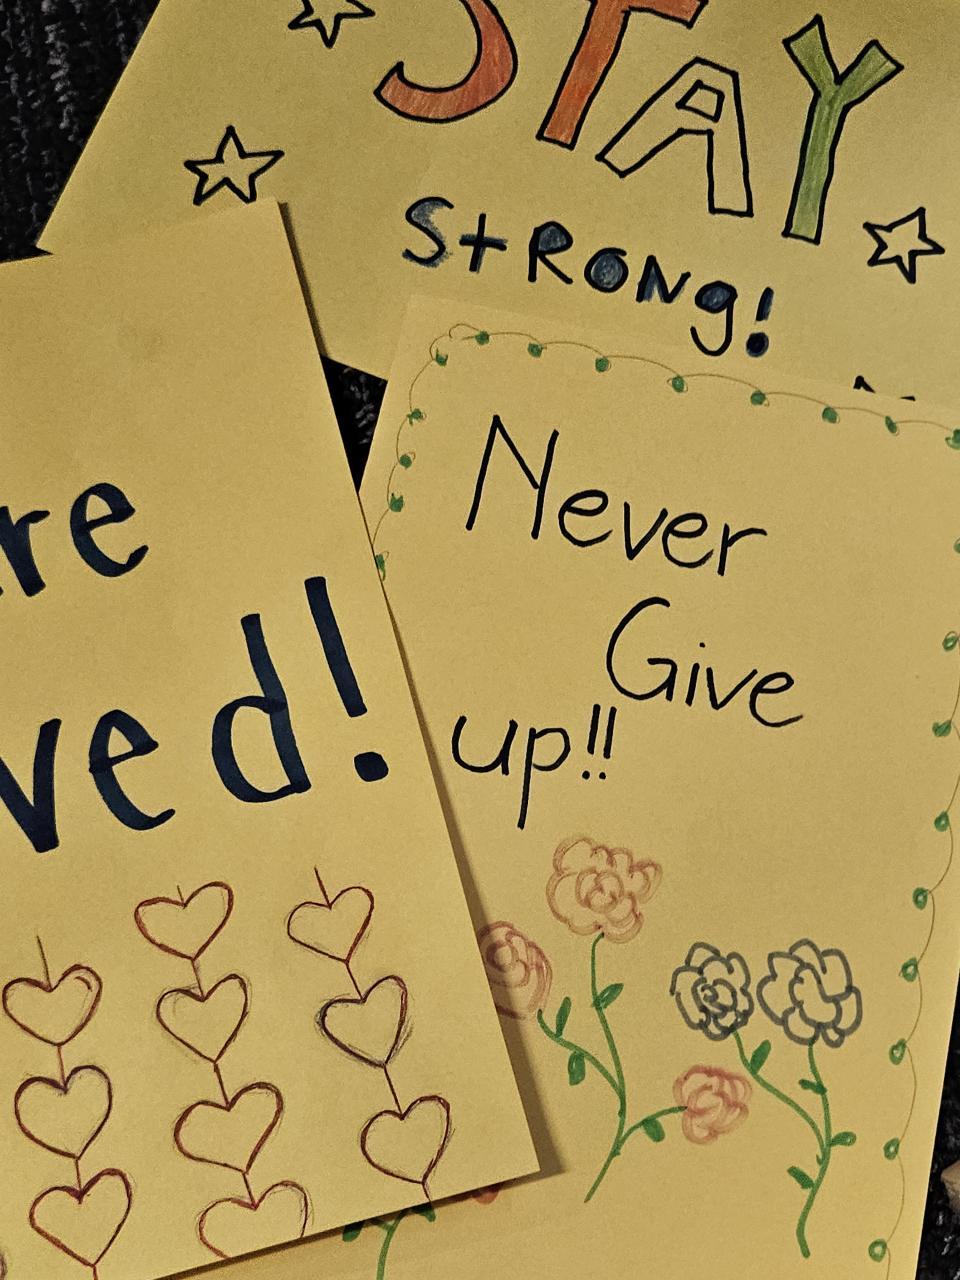 STAY
StRONg!
Never
Give
up!!
re
ved!